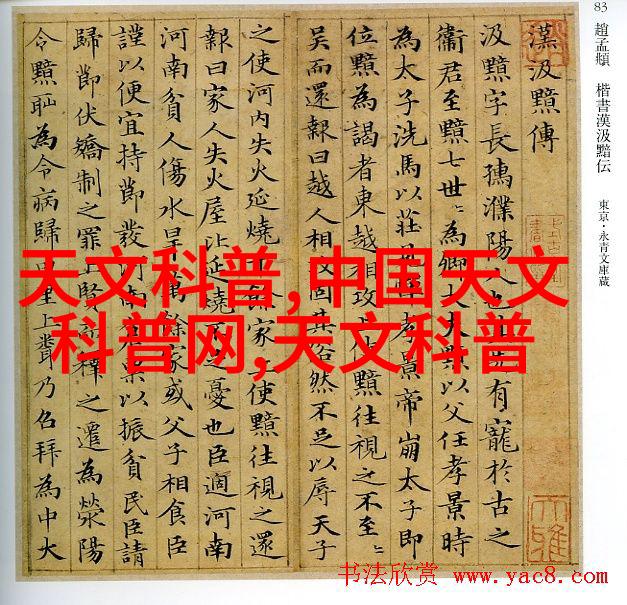 83 趙孟頫 楷書漢汲黯伝 東京・永青文庫蔵
漢汲黯傳
汲黯字長孺濮陽人也其先有寵於古之
衛君至黯七世〻為卿大夫黯以父任孝景時
為太子洗馬以莊見憚孝景帝崩太子即
位黯為謁者東越相攻上使黯往視之不至〻
吳而還報曰越人相攻固其俗然不足以辱天子
之使河內失火延燒千餘家上使黯往視之還
報曰家人失火屋比延燒不足憂也臣適河南
河南貧人傷水旱萬餘家或父子相食臣
謹以便宜持節發河南倉粟以振貧民臣請
歸節伏矯制之罪上賢而釋之遷為滎陽
令黯恥為令病歸田里上聞乃召拜為中大
天文科普,中国天文
科普网,天文科普
书法欣赏 www.yac8.com